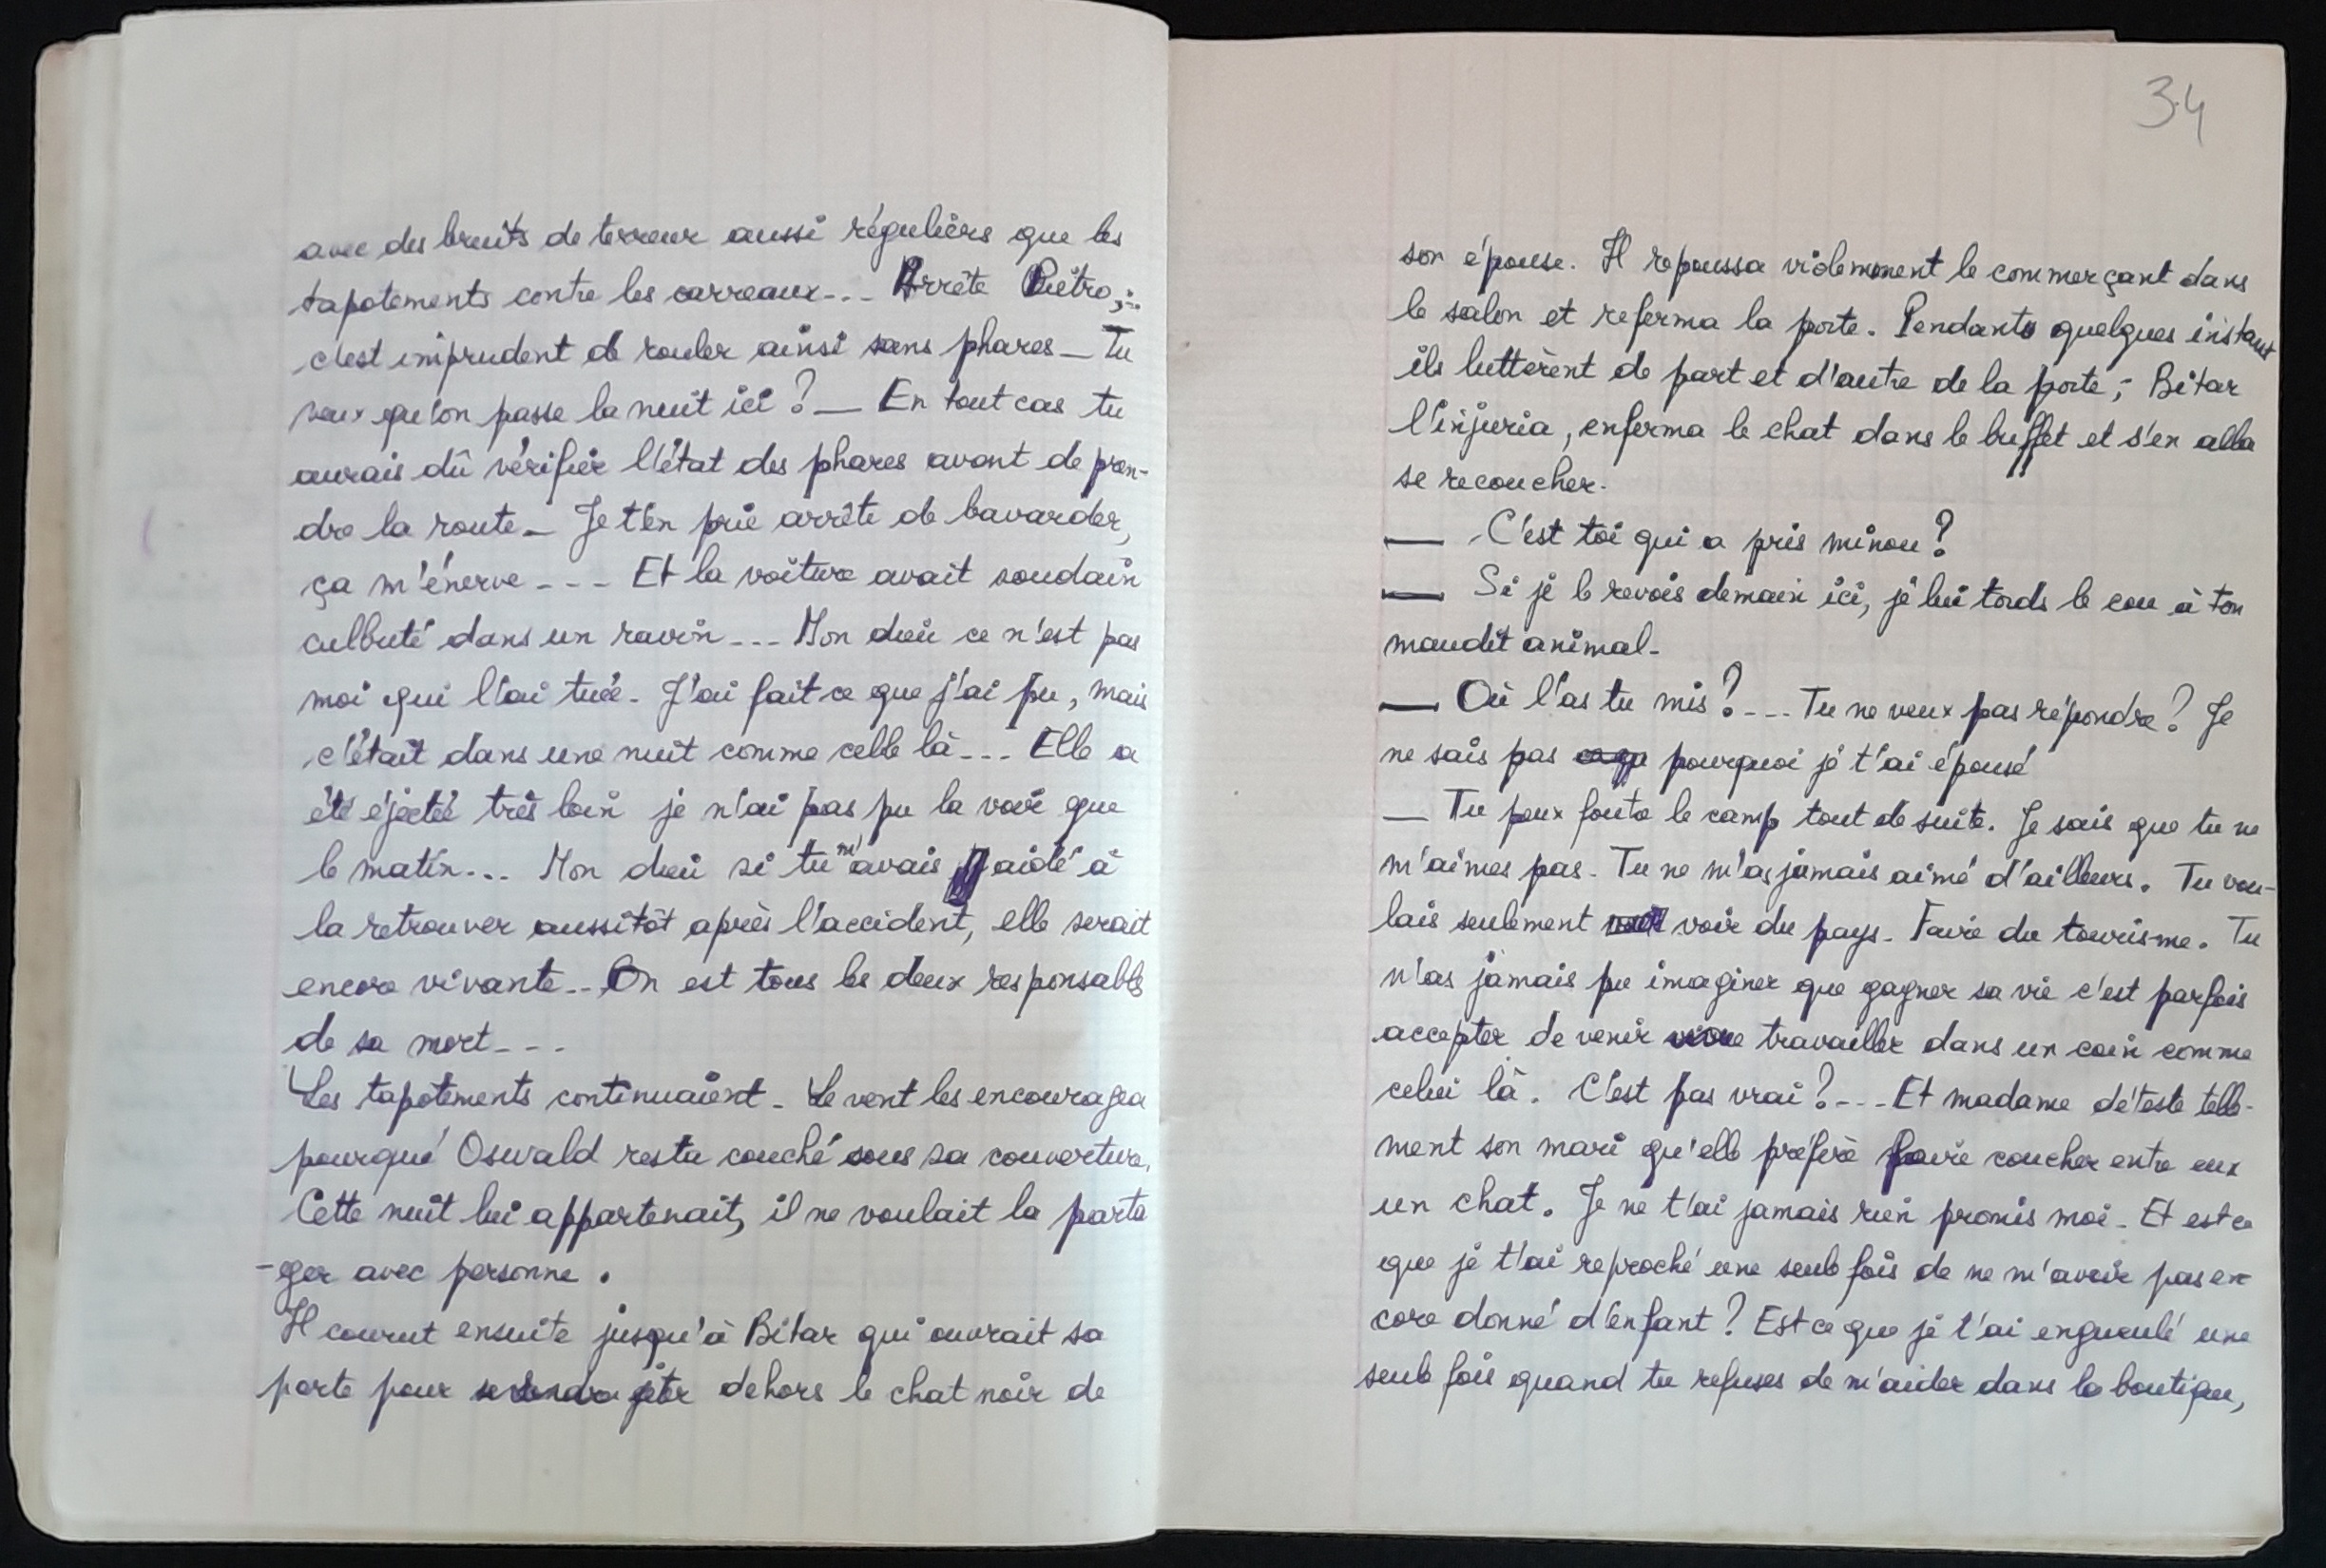 avec des bruits de terreur aussi réguliers que les
tapotements contre les carreaux... Arrête Piétro,...
c'est imprudent de rouler ainsi sans phares — Tu
veux qu'on passe la nuit ici ? — En tout cas tu
aurais dû vérifier l'état des phares avant de pren-
dre la route — Je t'en prie arrête de bavarder,
ça m'énerve - - - Et la voiture avait soudain
culbuté dans un ravin... Mon dieu ce n'est pas
moi qui l'ai tuée. J'ai fait ce que j'ai pu, mais
c'était dans une nuit comme celle là... Elle a
été éjectée très loin je n'ai pas pu la voir que
le matin... Mon dieu si tu m'avais aidé à
la retrouver aussitôt après l'accident, elle serait
encore vivante.. On est tous les deux responsables
de sa mort - - -
Les tapotements continuaient. Le vent les encouragea
pourqué Oswald resta couché sous sa couverture.
Cette nuit lui appartenait, il ne voulait la parta
-ger avec personne.
Il courut ensuite jusqu'à Bitar qui ouvrait sa
porte pour jeter dehors le chat noir de
34
son épouse. Il repoussa violemment le commerçant dans
le salon et referma la porte. Pendant quelques instant
ils luttèrent de part et d'autre de la porte ; Bitar
l'injuria, enferma le chat dans le buffet et s'en alla
se recoucher.
— C'est toi qui a pris minou ?
— Si je le revois demain ici, je lui tords le cou à ton
maudit animal.
— Où l'as tu mis ? ... Tu ne veux pas répondre ? Je
ne sais pas pourquoi je t'ai épousé
— Tu peux foutre le camp tout de suite. Je sais que tu ne
m'aimes pas. Tu ne m'as jamais aimé d'ailleurs. Tu vou-
lais seulement voir du pays. Faire du tourisme. Tu
n'as jamais pu imaginer que gagner sa vie c'est parfois
accepter de venir travailler dans un coin comme
celui là. C'est pas vrai ? ... Et madame déteste telle-
ment son mari qu'elle préfère faire coucher entre eux
un chat. Je ne t'ai jamais rien promis moi. Et est ce
que je t'ai reproché une seule fois de ne m'avoir pas en
core donné d'enfant ? Est ce que je t'ai engueulé une
seule fois quand tu refuses de m'aider dans la boutique,